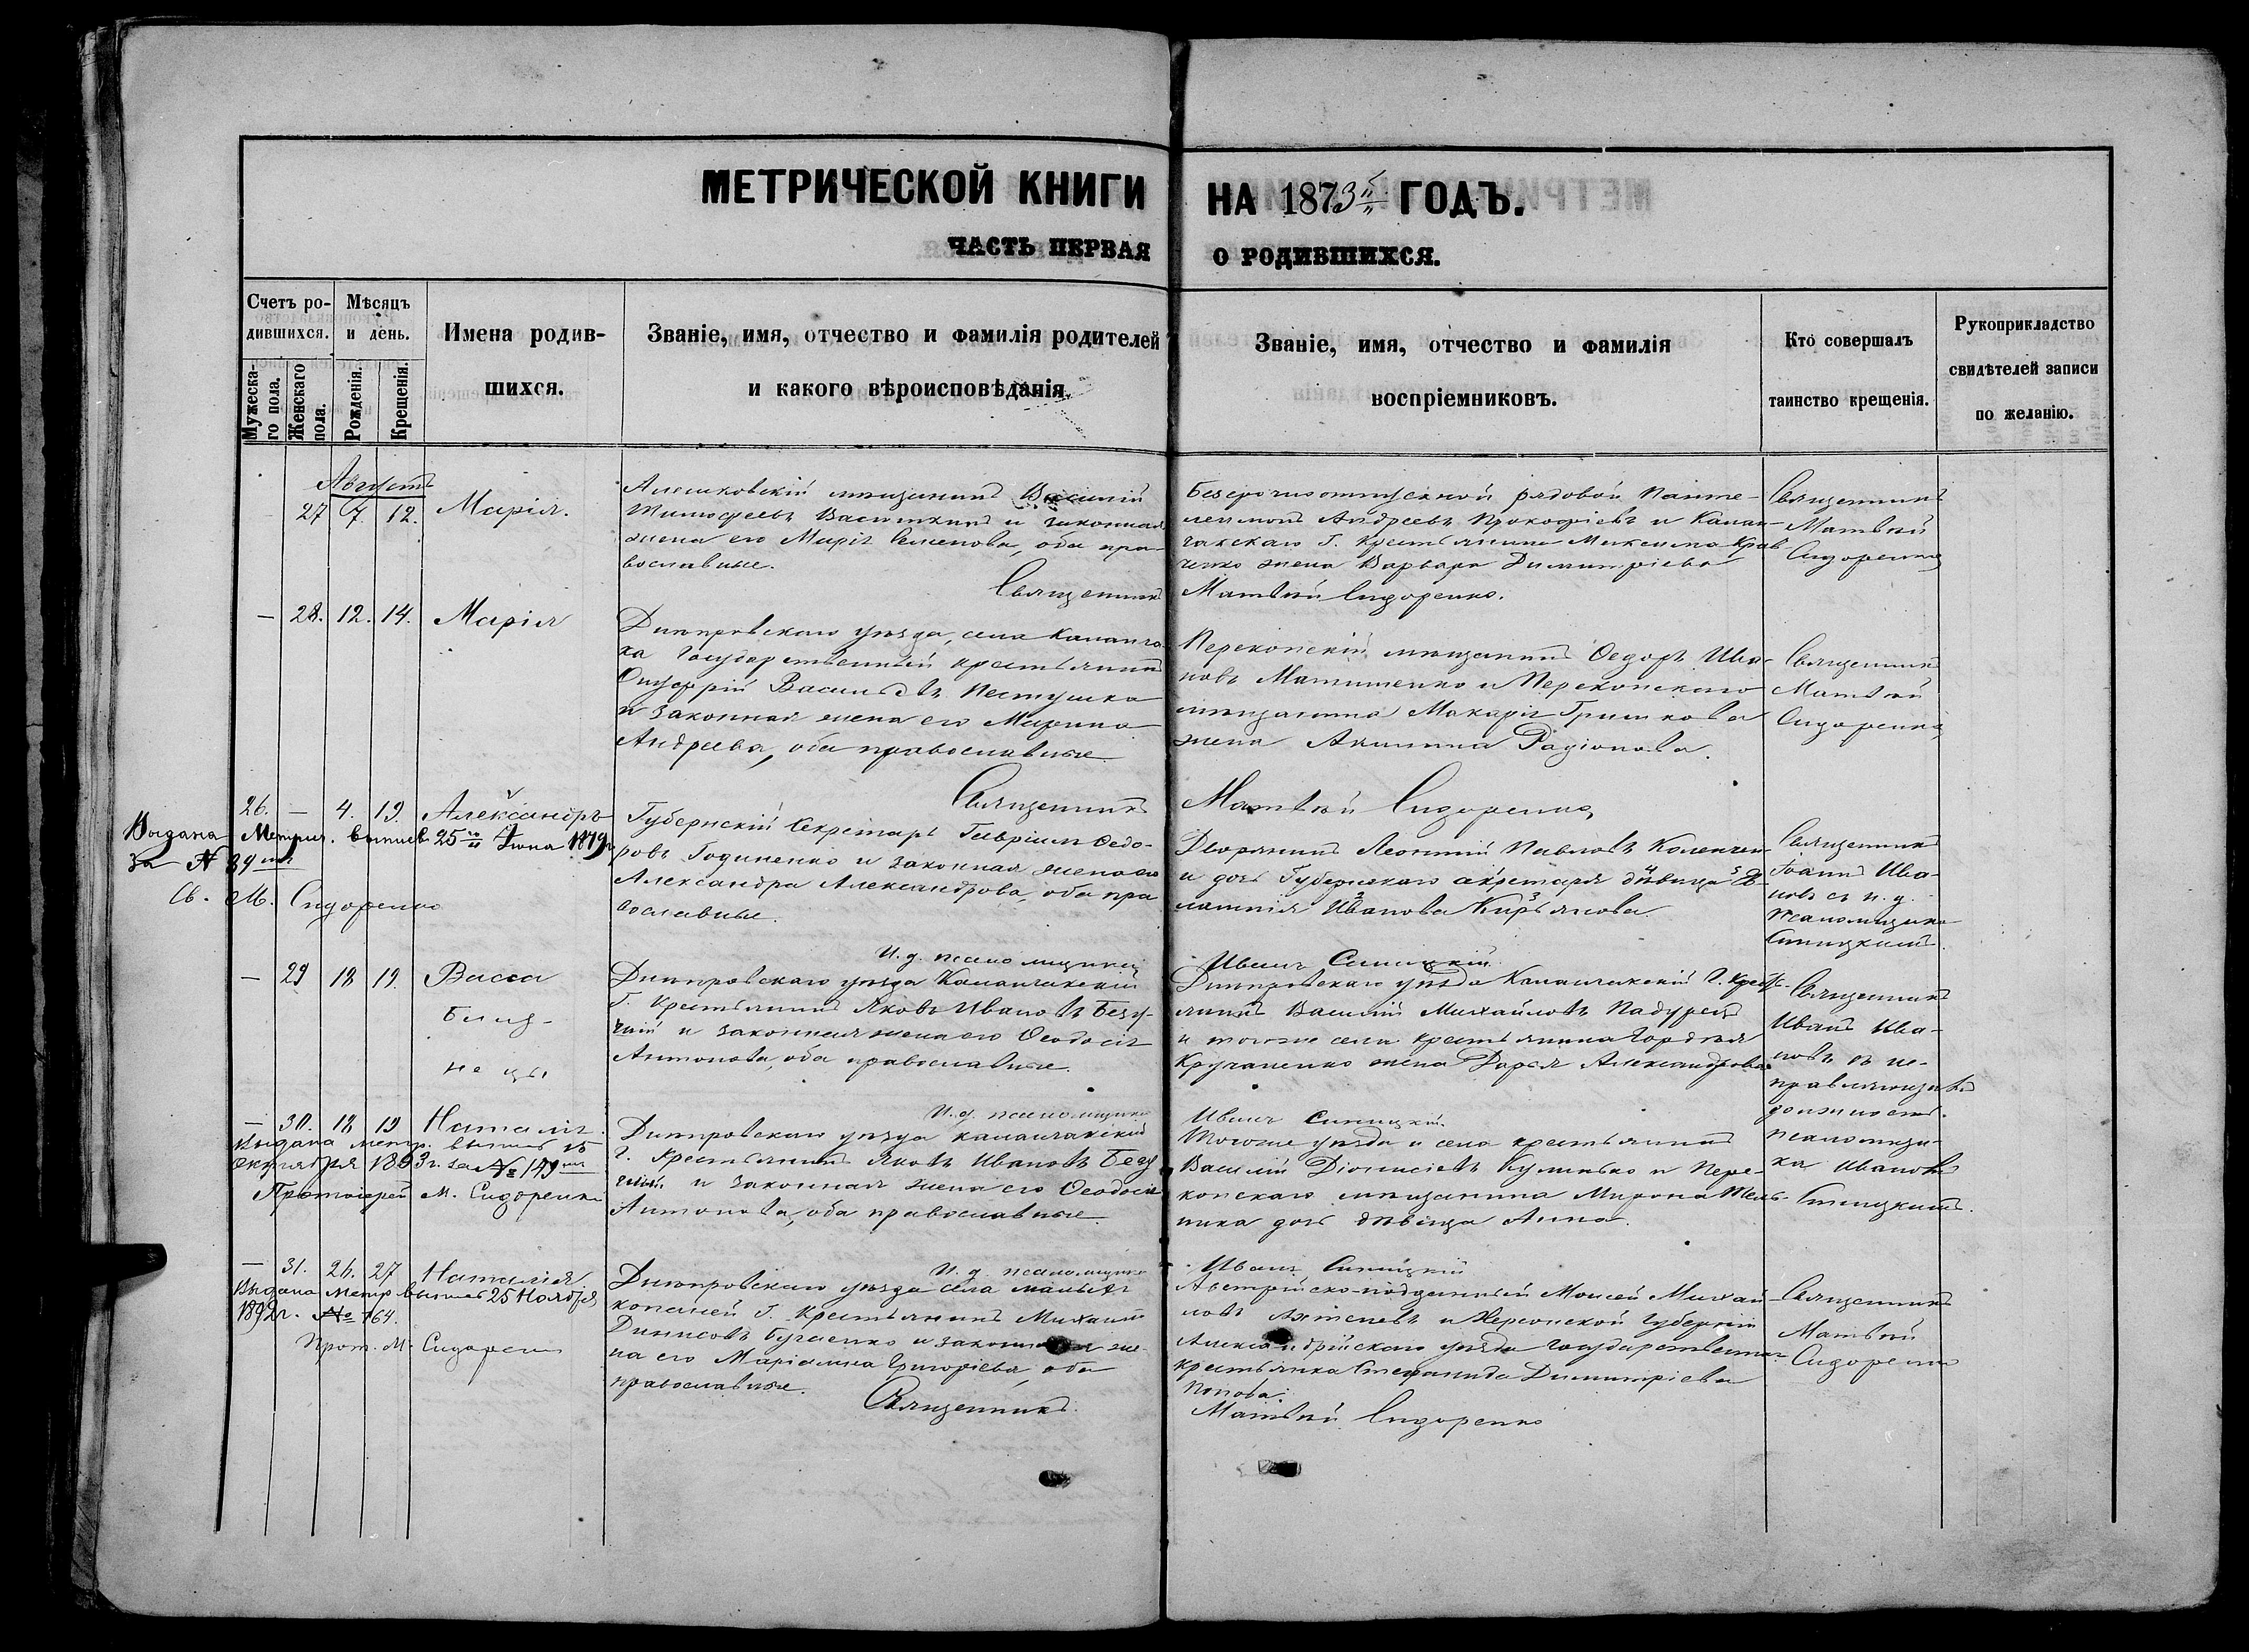 МЕТРИЧЕСКОЙ КНИГИ НА 1873й ГОДЪ.
ЧАСТЬ ПЕРВАЯ О РОДИВШИХСЯ.
Счетъ ро-
дившихся.
Мужеска-
го пола.
Женскаго
пола.
Мѣсяцъ
и день.
Рожденія.
Крещенія.
Имена родив-
шихся.
Званіе, имя, отчество и фамилія родителей
и какого вѣроисповѣданія.
Званіе, имя, отчество и фамилія
воспріемниковъ.
Кто совершалъ
таинство крещенія.
Рукоприкладство
свидѣтелей записи
по желанію.
Августъ
27 7 12. Марія.
Алешковскій мѣщанинъ Василій
Тимофеевъ Васюткинъ и законная
жена его Марія Семенова, оба пра-
вославные.
Безсрочноотпускной рядовой Панте-
леимонъ Андреевъ Прокофіевъ и Калан-
чакскаго Г. крестьянина Максима Крав-
ченко жена Варвара Димитріева
Священникъ
Матвѣй
Сидоренко
Священникъ Матвѣй Сидоренко.
— 28. 12. 14. Марія
Днѣпровскаго уѣзда, села Каланча-
ка Государственный крестьянинъ
Онуфрій Васильевъ Пестушко
и законная жена его Марина
Андреева, оба православные
Перекопскій мѣщанинъ Ѳедоръ Ива-
новъ Матишенко и Перекопскаго
мѣщанина Макарія Гришкова
жена Акилина Радіонова.
Священникъ
Матвѣй
Сидоренко
Священникъ Матвѣй Сидоренко
26. — 4. 19. Александръ
Выдана Метрич. выпись 25го Іюня 1879г
за № 89
Св. М. Сидоренко
Губернскій Секретарь Гавріилъ Ѳедо-
ровъ Годиненко и законная жена его
Александра Александрова, оба пра
вославные.
Дворянинъ Леонтій Павловъ
и дочь Губернскаго секретаря дѣвица
Иванова Кирьякова
Священникъ
Іоаннъ Ива-
новъ съ и. д.
псаломщика
Синицкимъ.
И. д. псаломщика Иванъ Синицкій.
— 29 18 19. Васса
Близ-
не цы
Днѣпровскаго уѣзда Каланчакскій
Г. Крестьянинъ Яковъ Ивановъ Безу-
глый и законная жена его Ѳеодосія
Антонова, оба православные.
Днѣпровскаго уѣзда Каланчакскій Г. крестья-
нинъ Василій Михайловъ Падурецъ
и тогоже села крестьянина Гордѣя
Кручаненко жена Дарья Александрова
Священникъ
Иванъ Ива-
новъ съ ис-
правляющимъ
должность
псаломщи-
ка Иваномъ
Синицкимъ.
И. д. псаломщика Иванъ Синицкій
— 30. 18 19 Наталія.
Выдана метр. выпись 15
октября 1893г. за № 149
Протоіерей М. Сидоренко
Днѣпровскаго уѣзда каланчакскій
Г. Крестьянинъ Яковъ Ивановъ Безу
глый и законная жена его Ѳеодосія
Антонова, оба православные.
Тогоже уѣзда и села крестьянинъ
Василій Діонисіевъ Кулинько и Пере-
копскаго мѣщанина Мирона Мель-
ника дочь дѣвица Анна.
И. д. псаломщика Иванъ Синицкій
— 31. 26. 27 Наталія
Выдана метр. выпись 25 Ноября
1892г. № 164.
Прот. М. Сидоренко
Днѣпровскаго уѣзда села малыхъ
копаней Г. Крестьянинъ Михаилъ
Динисовъ Бугаенко и законная же-
на его Маріамна Григоріева, оба
православные.
Австрійско-подданный Моисей Михай
ловъ и Херсонской губерніи
Александрійскаго уѣзда государственная
крестьянка Стефанида Димитріева
Попова.
Священникъ
Матвѣй
Сидоренко
Священникъ Матвѣй Сидоренко